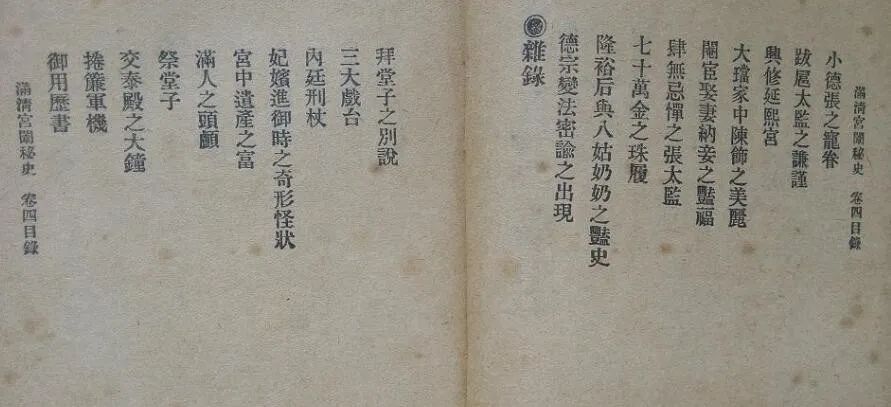 滿清宮闈秘史 卷四目錄
小德張之寵眷
跋扈太監之謙謹
興修延熙宮
大璫家中陳飾之美麗
閹宦娶妻納妾之豔福
肆無忌憚之張太監
七十萬金之珠履
隆裕后與八姑奶奶之豔史
德宗變法密諭之出現
雜錄
拜堂子之別說
三大戲台
內廷刑杖
妃嬪進御時之奇形怪狀
宮中遺產之富
滿人之頭顱
祭堂子
交泰殿之大鐘
捲簾軍機
御用歷書
滿清宮闈秘史 卷四目錄